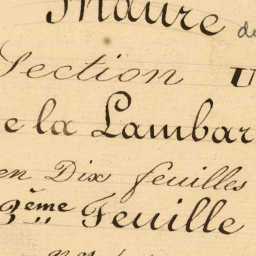 Maure de
Section U
e la Lambar
en Dix feuilles
2ème Feuille